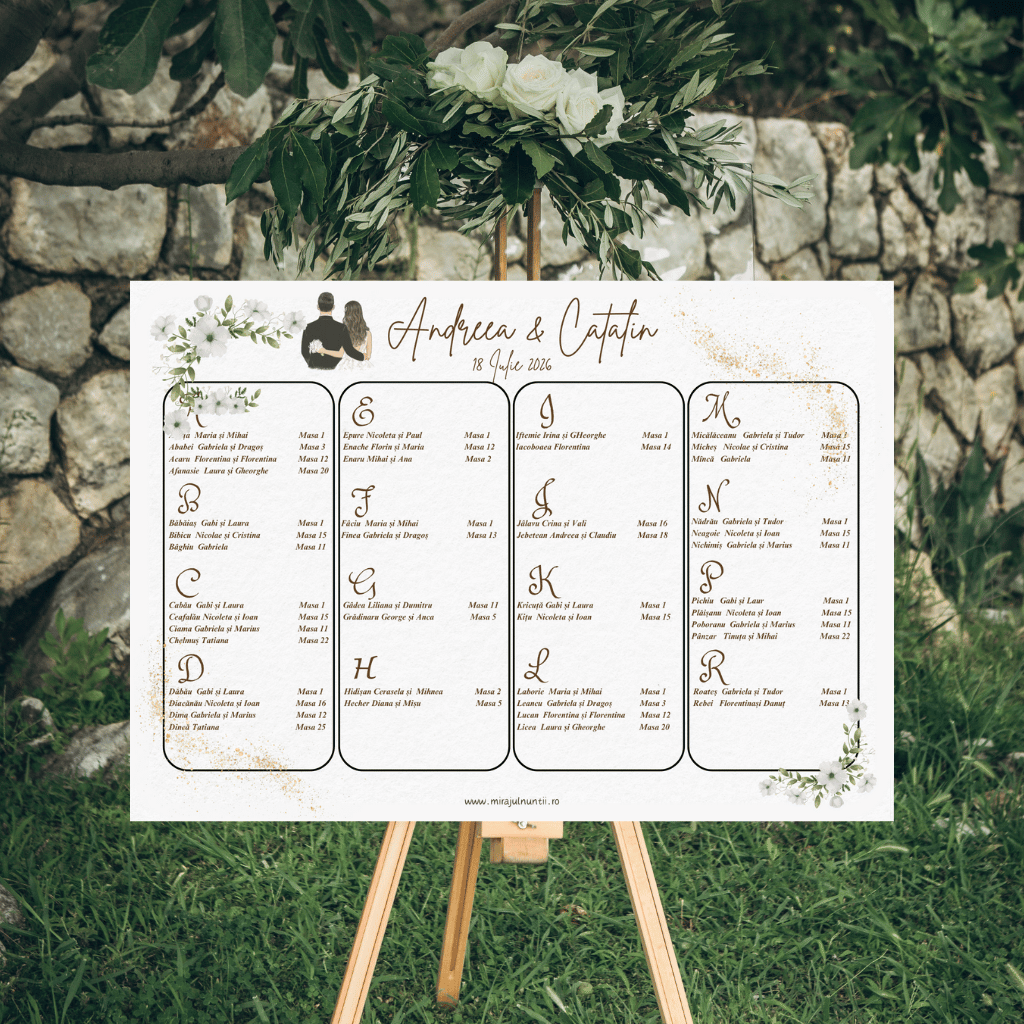 Andreea & Catalin
18 Iulie 2026
Maria și Mihai Masa 1
Ababei Gabriela și Dragoș Masa 3
Acaru Florentina și Florentina Masa 12
Afanasie Laura și Gheorghe Masa 20
B
Băbăiaș Gabi și Laura Masa 1
Bibicu Nicolae și Cristina Masa 15
Băghiu Gabriela Masa 11
C
Cabău Gabi și Laura Masa 1
Ceafalău Nicoleta și Ioan Masa 15
Ciama Gabriela și Marius Masa 11
Chelmuș Tatiana Masa 22
D
Dăbău Gabi și Laura Masa 1
Diacănău Nicoleta și Ioan Masa 16
Dima Gabriela și Marius Masa 12
Dincă Tatiana Masa 25
E
Epure Nicoleta și Paul Masa 1
Enache Florin și Maria Masa 12
Enaru Mihai și Ana Masa 2
F
Făciu Maria și Mihai Masa 1
Finea Gabriela și Dragoș Masa 13
G
Gâdea Liliana și Dumitru Masa 11
Grădinaru George și Anca Masa 5
H
Hidișan Cerasela și Mihnea Masa 2
Hecher Diana și Mișu Masa 5
I
Iftemie Irina și GHeorghe Masa 1
Iacoboaea Florentina Masa 14
J
Jălavu Crina și Vali Masa 16
Jebetean Andreea și Claudiu Masa 18
K
Kricuță Gabi și Laura Masa 1
Kițu Nicoleta și Ioan Masa 15
L
Laborie Maria și Mihai Masa 1
Leancu Gabriela și Dragoș Masa 3
Lucan Florentina și Florentina Masa 12
Licea Laura și Gheorghe Masa 20
M
Micălăceanu Gabriela și Tudor Masa 1
Micheș Nicolae și Cristina Masa 15
Mincă Gabriela Masa 11
N
Nădrău Gabriela și Tudor Masa 1
Neagoie Nicoleta și Ioan Masa 15
Nichimiș Gabriela și Marius Masa 11
P
Pichiu Gabi și Laur Masa 1
Plăișanu Nicoleta și Ioan Masa 15
Poboranu Gabriela și Marius Masa 11
Pânzar Tinuța și Mihai Masa 22
R
Roateș Gabriela și Tudor Masa 1
Rebei Florentinași Danuț Masa 13
www.mirajulnuntii.ro